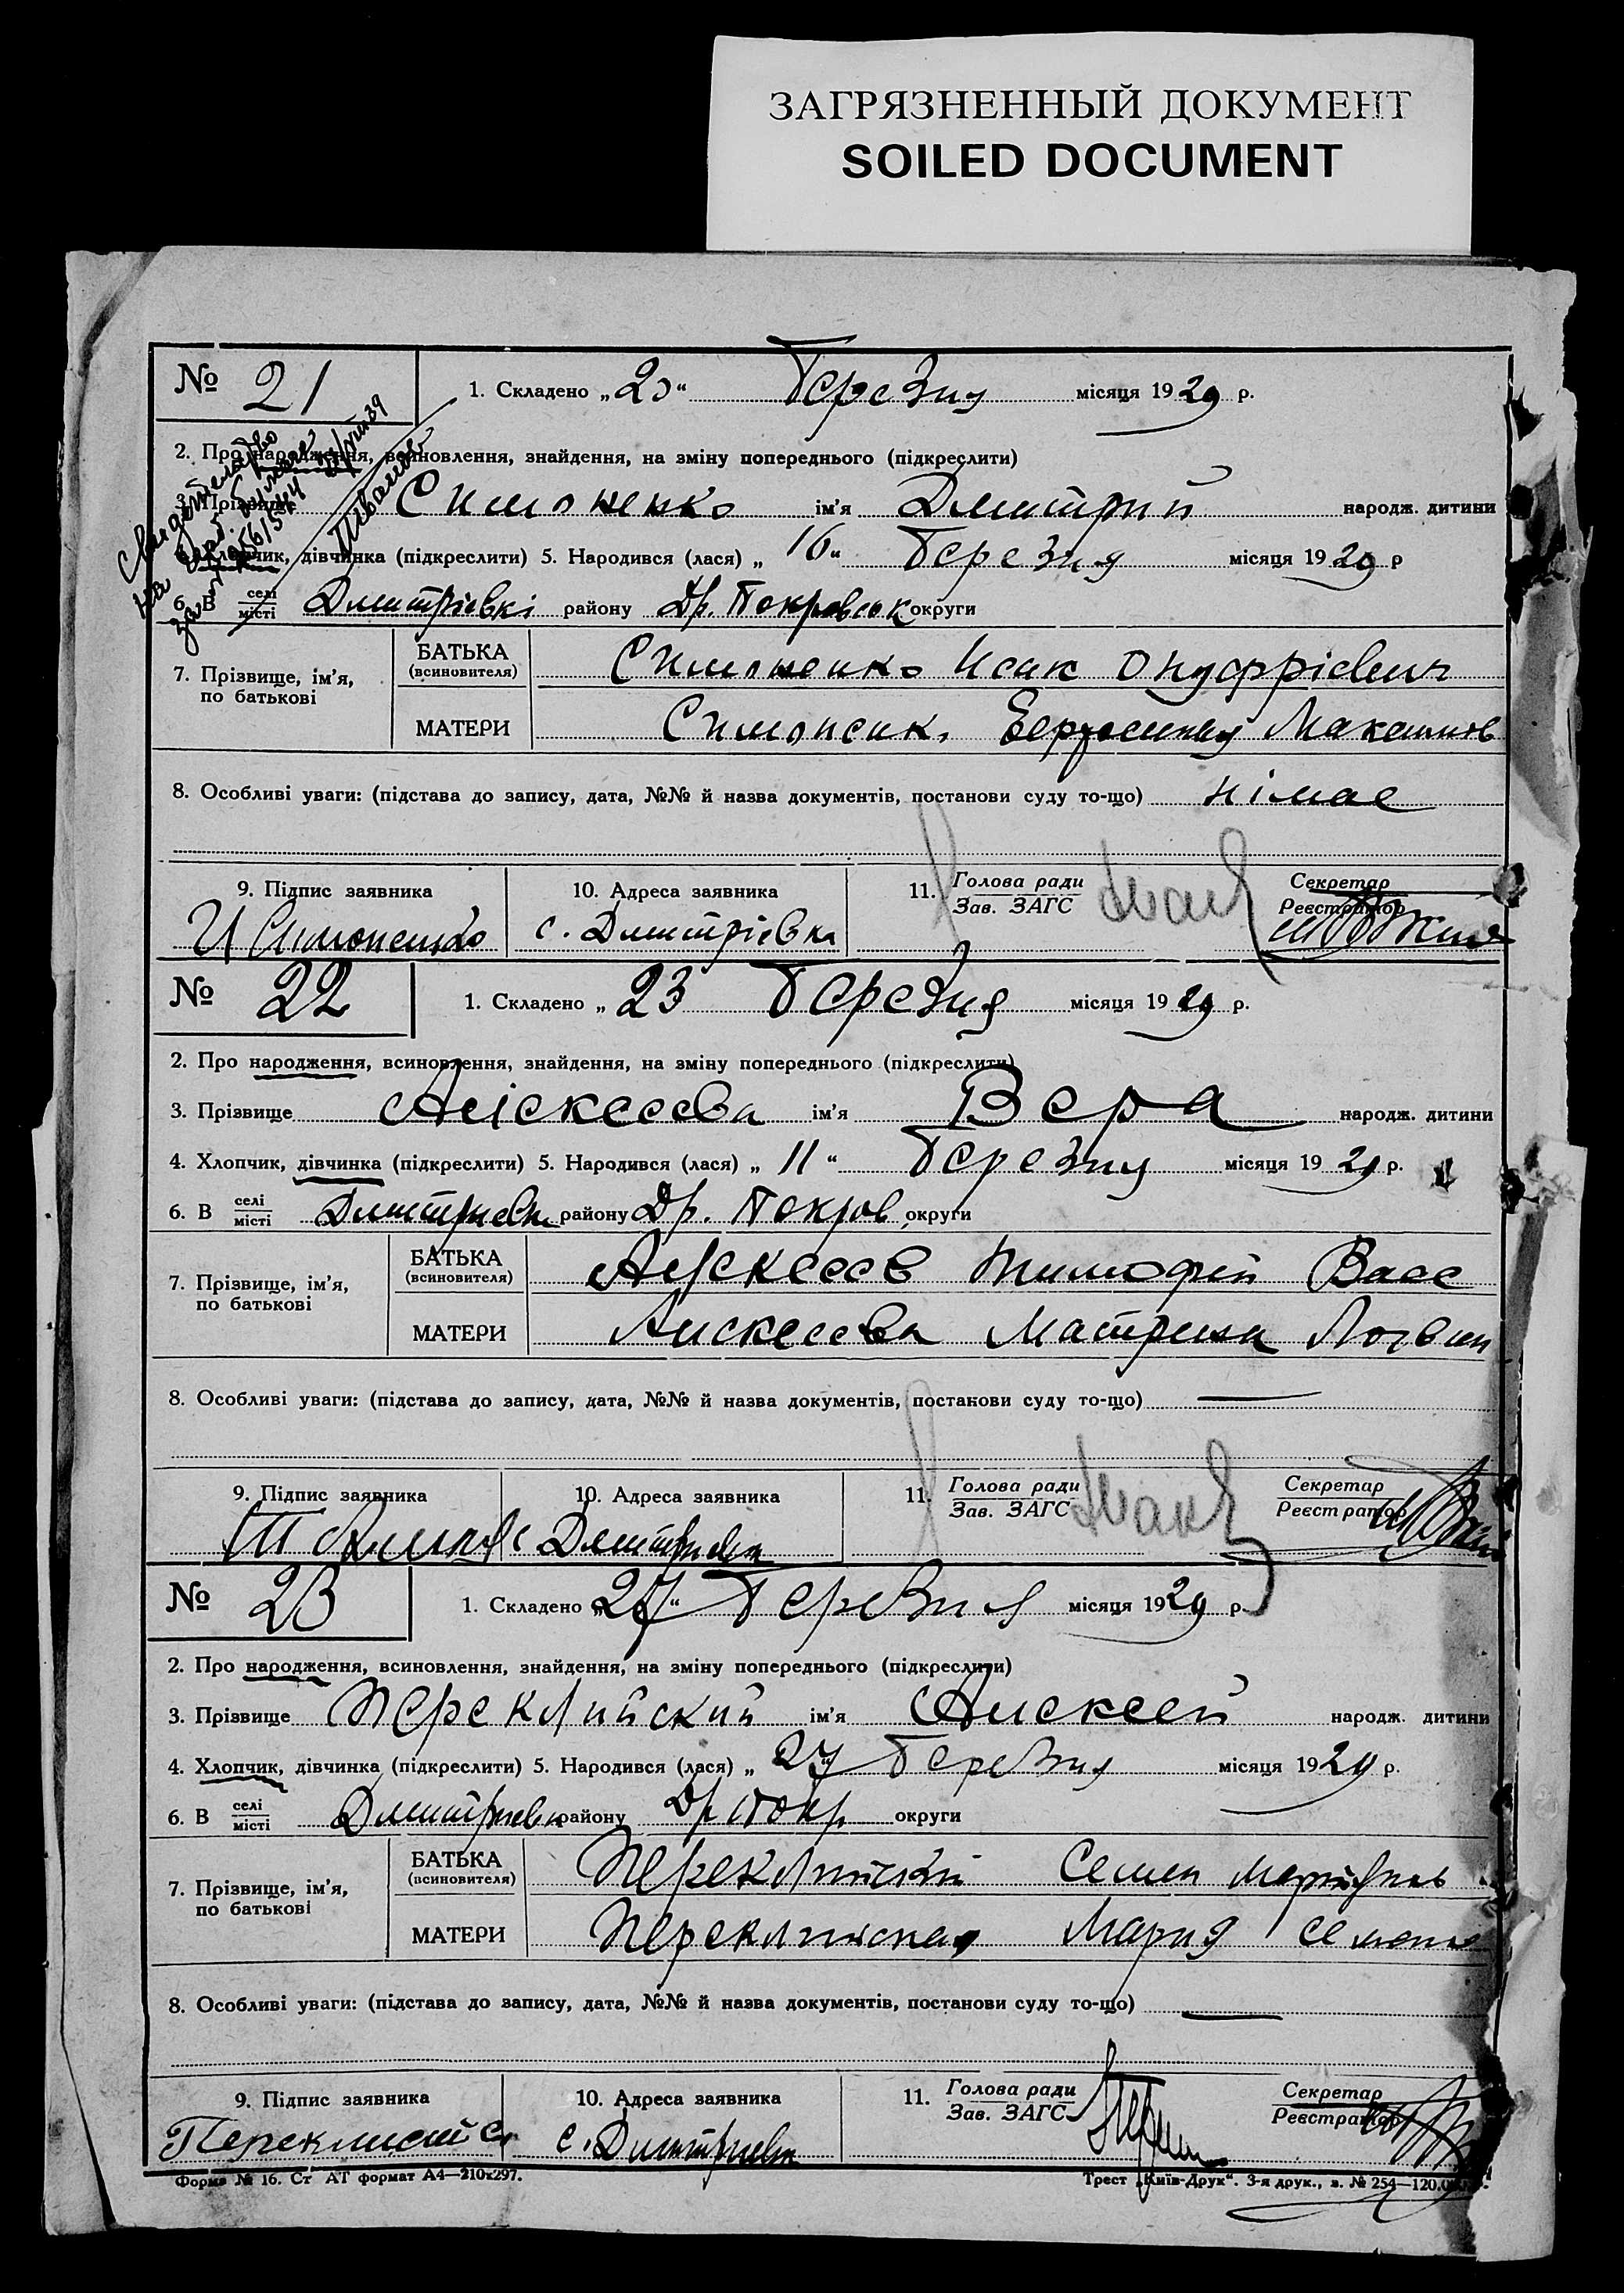 ЗАГРЯЗНЕННЫЙ ДОКУМЕНТ
SOILED DOCUMENT
№ 21 1. Складено „20“ Березня місяця 1929 р.
2. Про народження, всиновлення, знайдення, на зміну попереднього (підкреслити)
3. Прізвище Симоненко ім’я Дмитрий народж. дитини
4. Хлопчик, дівчинка (підкреслити) 5. Народився (лася) „16“ Березня місяця 1929 р
6. В селі місті Дмитрівкі району Др. Покровськ округи
7. Прізвище, ім’я, по батькові
БАТЬКА (всиновителя) Симоненко Исак Онуфрієвич
МАТЕРИ
8. Особливі уваги: (підстава до запису, дата, №№ й назва документів, постанови суду то-що) німає
9. Підпис заявника 10. Адреса заявника 11. Голова ради Зав. ЗАГС Секретар Реєстратор
И Симоненко с. Дмитрієвка
№ 22 1. Складено „23 Березня місяця 1929 р.
2. Про народження, всиновлення, знайдення, на зміну попереднього (підкреслити)
3. Прізвище Алексеева ім’я Вера народж. дитини
4. Хлопчик, дівчинка (підкреслити) 5. Народився (лася) „11“ Березня місяця 1929 р.
6. В селі місті Дмитриевк району Др. Покров округи
7. Прізвище, ім’я, по батькові
БАТЬКА (всиновителя) Алексеев Тимофей Васе
МАТЕРИ Алексеева Матрена Логвин
8. Особливі уваги: (підстава до запису, дата, №№ й назва документів, постанови суду то-що) —
9. Підпис заявника 10. Адреса заявника 11. Голова ради Зав. ЗАГС Секретар Реєстратор
с Дмитриевка
№ 23 1. Складено „27“ Березня місяця 1929 р.
2. Про народження, всиновлення, знайдення, на зміну попереднього (підкреслити)
3. Прізвище Переклийский ім’я Алексей народж. дитини
4. Хлопчик, дівчинка (підкреслити) 5. Народився (лася) „27 Березня місяця 1929 р.
6. В селі місті Дмитриевк району Др Покр округи
7. Прізвище, ім’я, по батькові
БАТЬКА (всиновителя) Переклийский Семен
МАТЕРИ Переклийская Мария Семен
8. Особливі уваги: (підстава до запису, дата, №№ й назва документів, постанови суду то-що) —
9. Підпис заявника 10. Адреса заявника 11. Голова ради Зав. ЗАГС Секретар Реєстратор
с. Дмитриевка
Форма № 16. Ст АТ формат А4—210х297. Трест „Київ-Друк“. 3-я друк., з. № 254—120.0